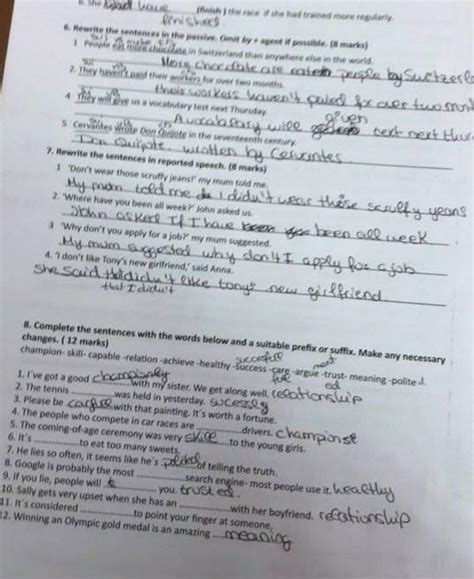 5. She would have (finish) the race if she had trained more regularly.
finished
6. Rewrite the sentences in the passive. Omit by + agent if possible. (8 marks)
1 People eat more chocolate in Switzerland than anywhere else in the world.
More chocolate are eaten people by Switzerl
2. They haven't paid their workers for over two months.
workers haven't paied for over two mont
4 They will give us a vocabulary test next Thursday.
given
A vocabulary will text next thur
5 Cervantes wrote Don Quijote in the seventeenth century.
Don Quijote. written by Cervantes
7. Rewrite the sentences in reported speech. (8 marks)
1 'Don't wear those scruffy jeans!' my mum told me.
My mum told me I didn't wear those scruffy yeans
2. 'Where have you been all week?' John asked us.
John asked If I have been all week
3 'Why don't you apply for a job?' my mum suggested.
My mum suggested why don't I apply for a job
4. 'I don't like Tony's new girlfriend,' said Anna.
She said didn't like tonys new girlfriend
that I didn't
8. Complete the sentences with the words below and a suitable prefix or suffix. Make any necessary
changes. ( 12 marks)
succesful ment
champion- skill- capable -relation -achieve -healthy -success -care -argue -trust- meaning -polite
ful ed
1. I've got a good championship with my sister. We get along well. relationship
2. The tennis was held in yesterday. sucessly
3. Please be carful with that painting. It's worth a fortune.
4. The people who compete in car races are drivers. champion
5. The coming-of-age ceremony was very skill to the young girls.
6. It's to eat too many sweets.
7. He lies so often, it seems like he's of telling the truth.
8. Google is probably the most search engine- most people use it. healthy
9. If you lie, people will you. trusted
10. Sally gets very upset when she has an with her boyfriend. relationship
11. It's considered to point your finger at someone.
12. Winning an Olympic gold medal is an amazing meaning